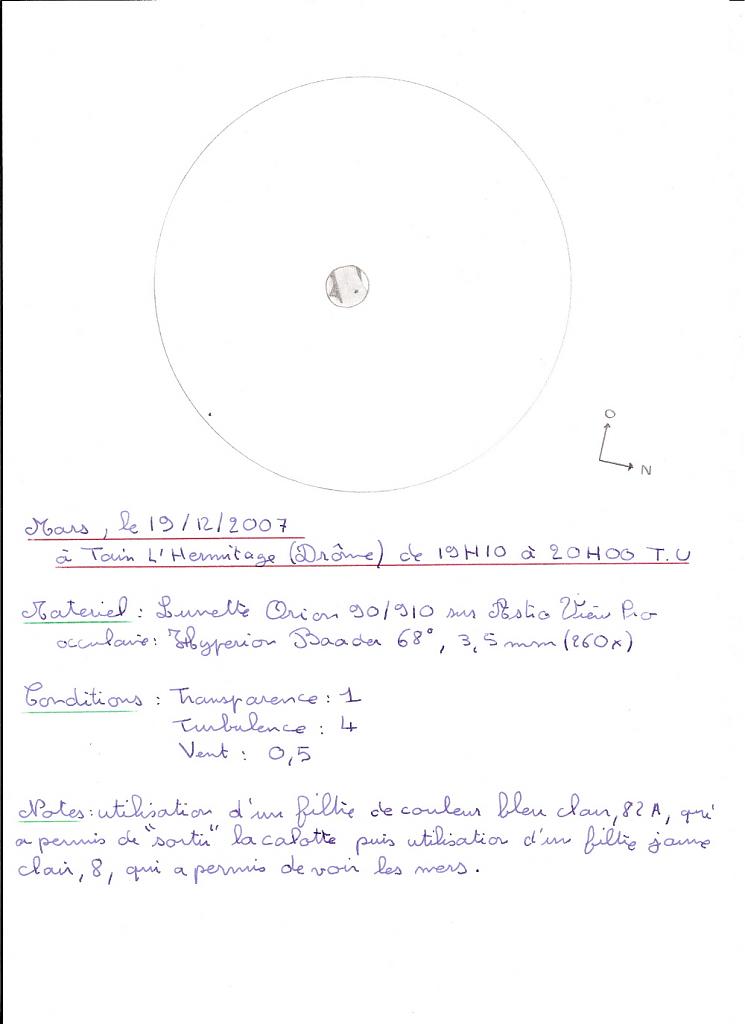 O
N
Mars, le 19/12/2007
à Tain L'Hermitage (Drôme) de 19H10 à 20H00 T.U
Materiel : Lunette Orion 90/910 sur Astro View Pro
occulaire: Hyperion Baader 68°, 3,5mm (260x)
Conditions : Transparence : 1
Turbulence : 4
Vent : 0,5
Notes: utilisation d'un filtre de couleur bleu clair, 82A, qui
a permis de "sortir" la calotte puis utilisation d'un filtre jaune
clair, 8, qui a permis de voir les mers.